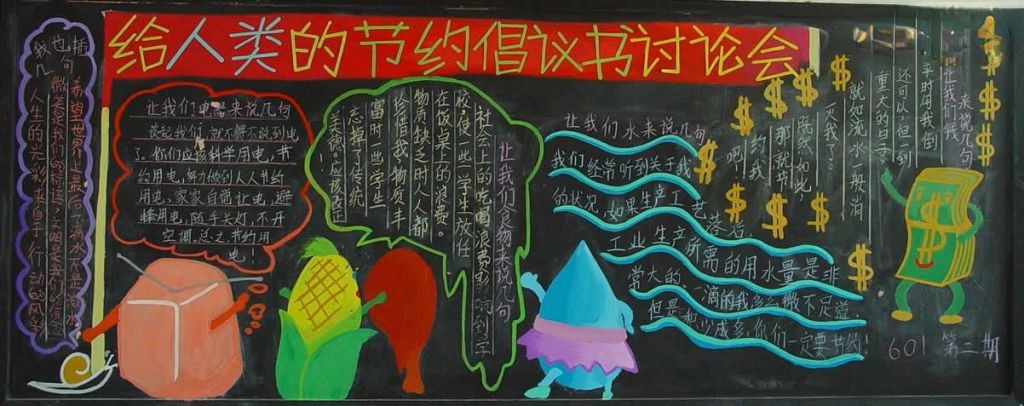 给人类的节约倡议书讨论会
让我们电器来说几句
谈起我们,就不能不说到电
了,你们应该科学用电,节
约用电,努力做到人人节约
用电,家家自觉让电,避
峰用电,随手关灯,不开
空调,总之节约用
电!
让我们食物来说几句
社会上的吃喝浪费影响到学
校,使一些学生放任
在饭桌上的浪费。
物质缺乏时人人都
珍惜我,物质丰
富时一些学生
忘掉了传统
美德!
让我们水来说几句
我们经常听到关于我
的状况,如果生产工艺落后
工业生产所需的用水量是非
常大的,一滴的我多么微不足道
但是积少成多,你们一定要节约!
让我们钱
来说几句
平时用我倒
还可以,但一到
重大的日子,
就如流水一般消
灭我了!
既然如此,
那就节
约我
吧!
也插
我几句
希望世界上最后一滴水不是
人生的光彩来自于行动的
601 第二期